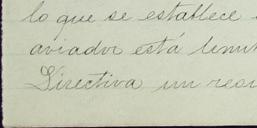 lo que se establece
aviador está
Directiva un